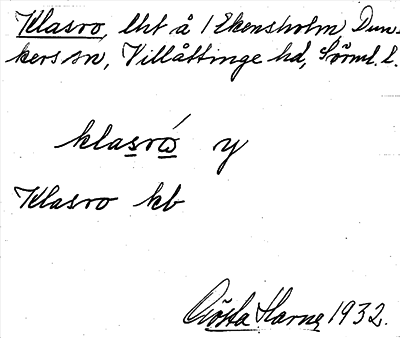 Klasro, lht å 1 Ekensholm, Dun-
kers sn, Villåttinge hd, Sörml. l.
klasrω´ y
Klasro kb
Gösta Harne 1932.